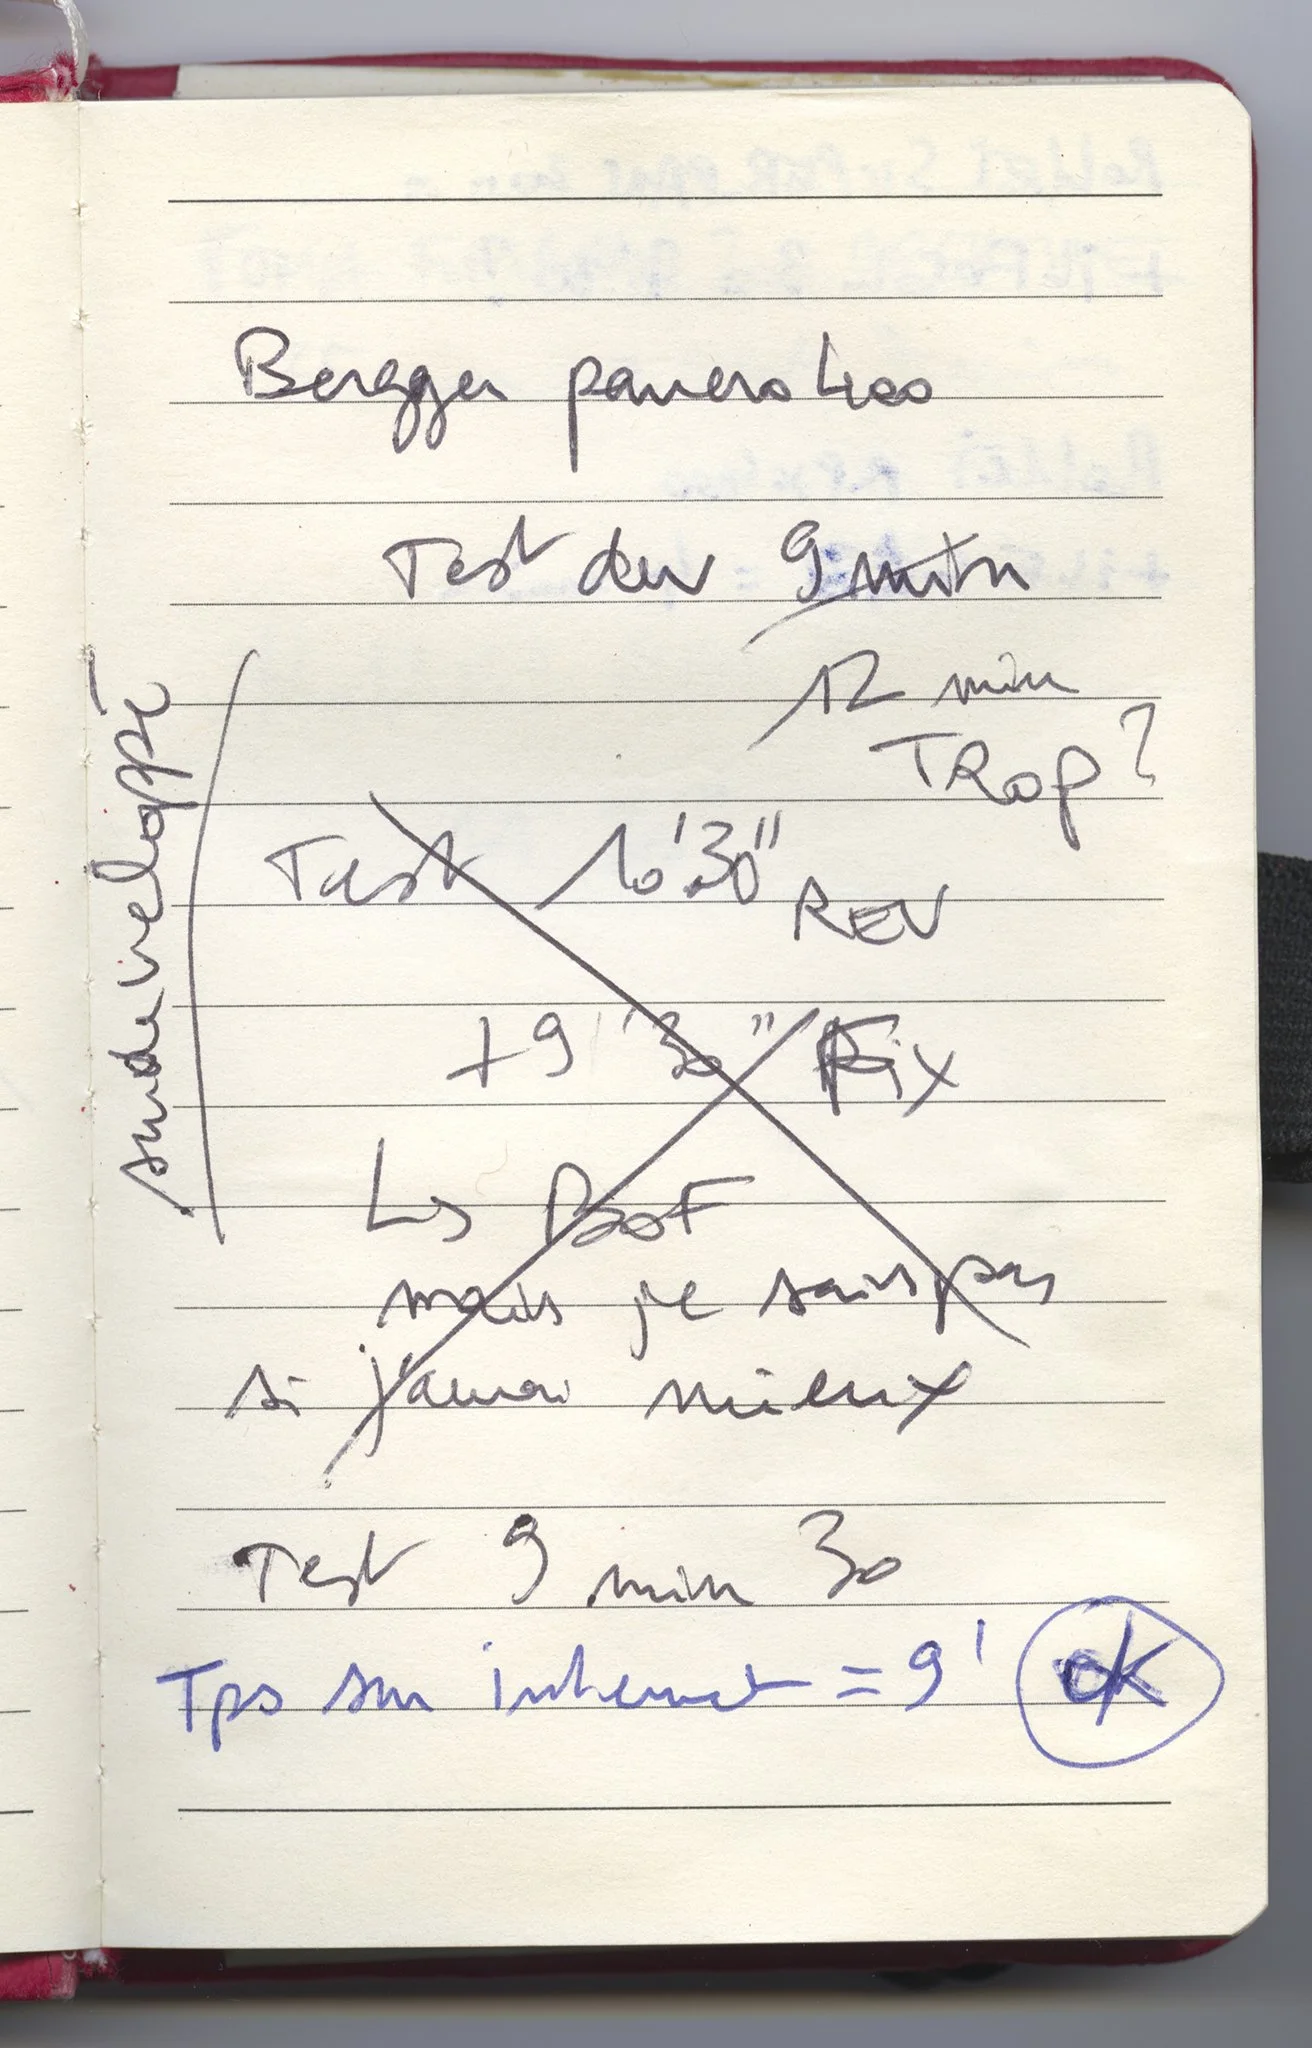 Bergger panero 400
Test dev 9 min
12 min
TROP ?
surdeveloppé
Test 10'30" REV
+ 9'30" Fix
Ls BOF
mais je sais pas
si j'aurai mieux
Test 9 min 30
Tps sur internet = 9' OK